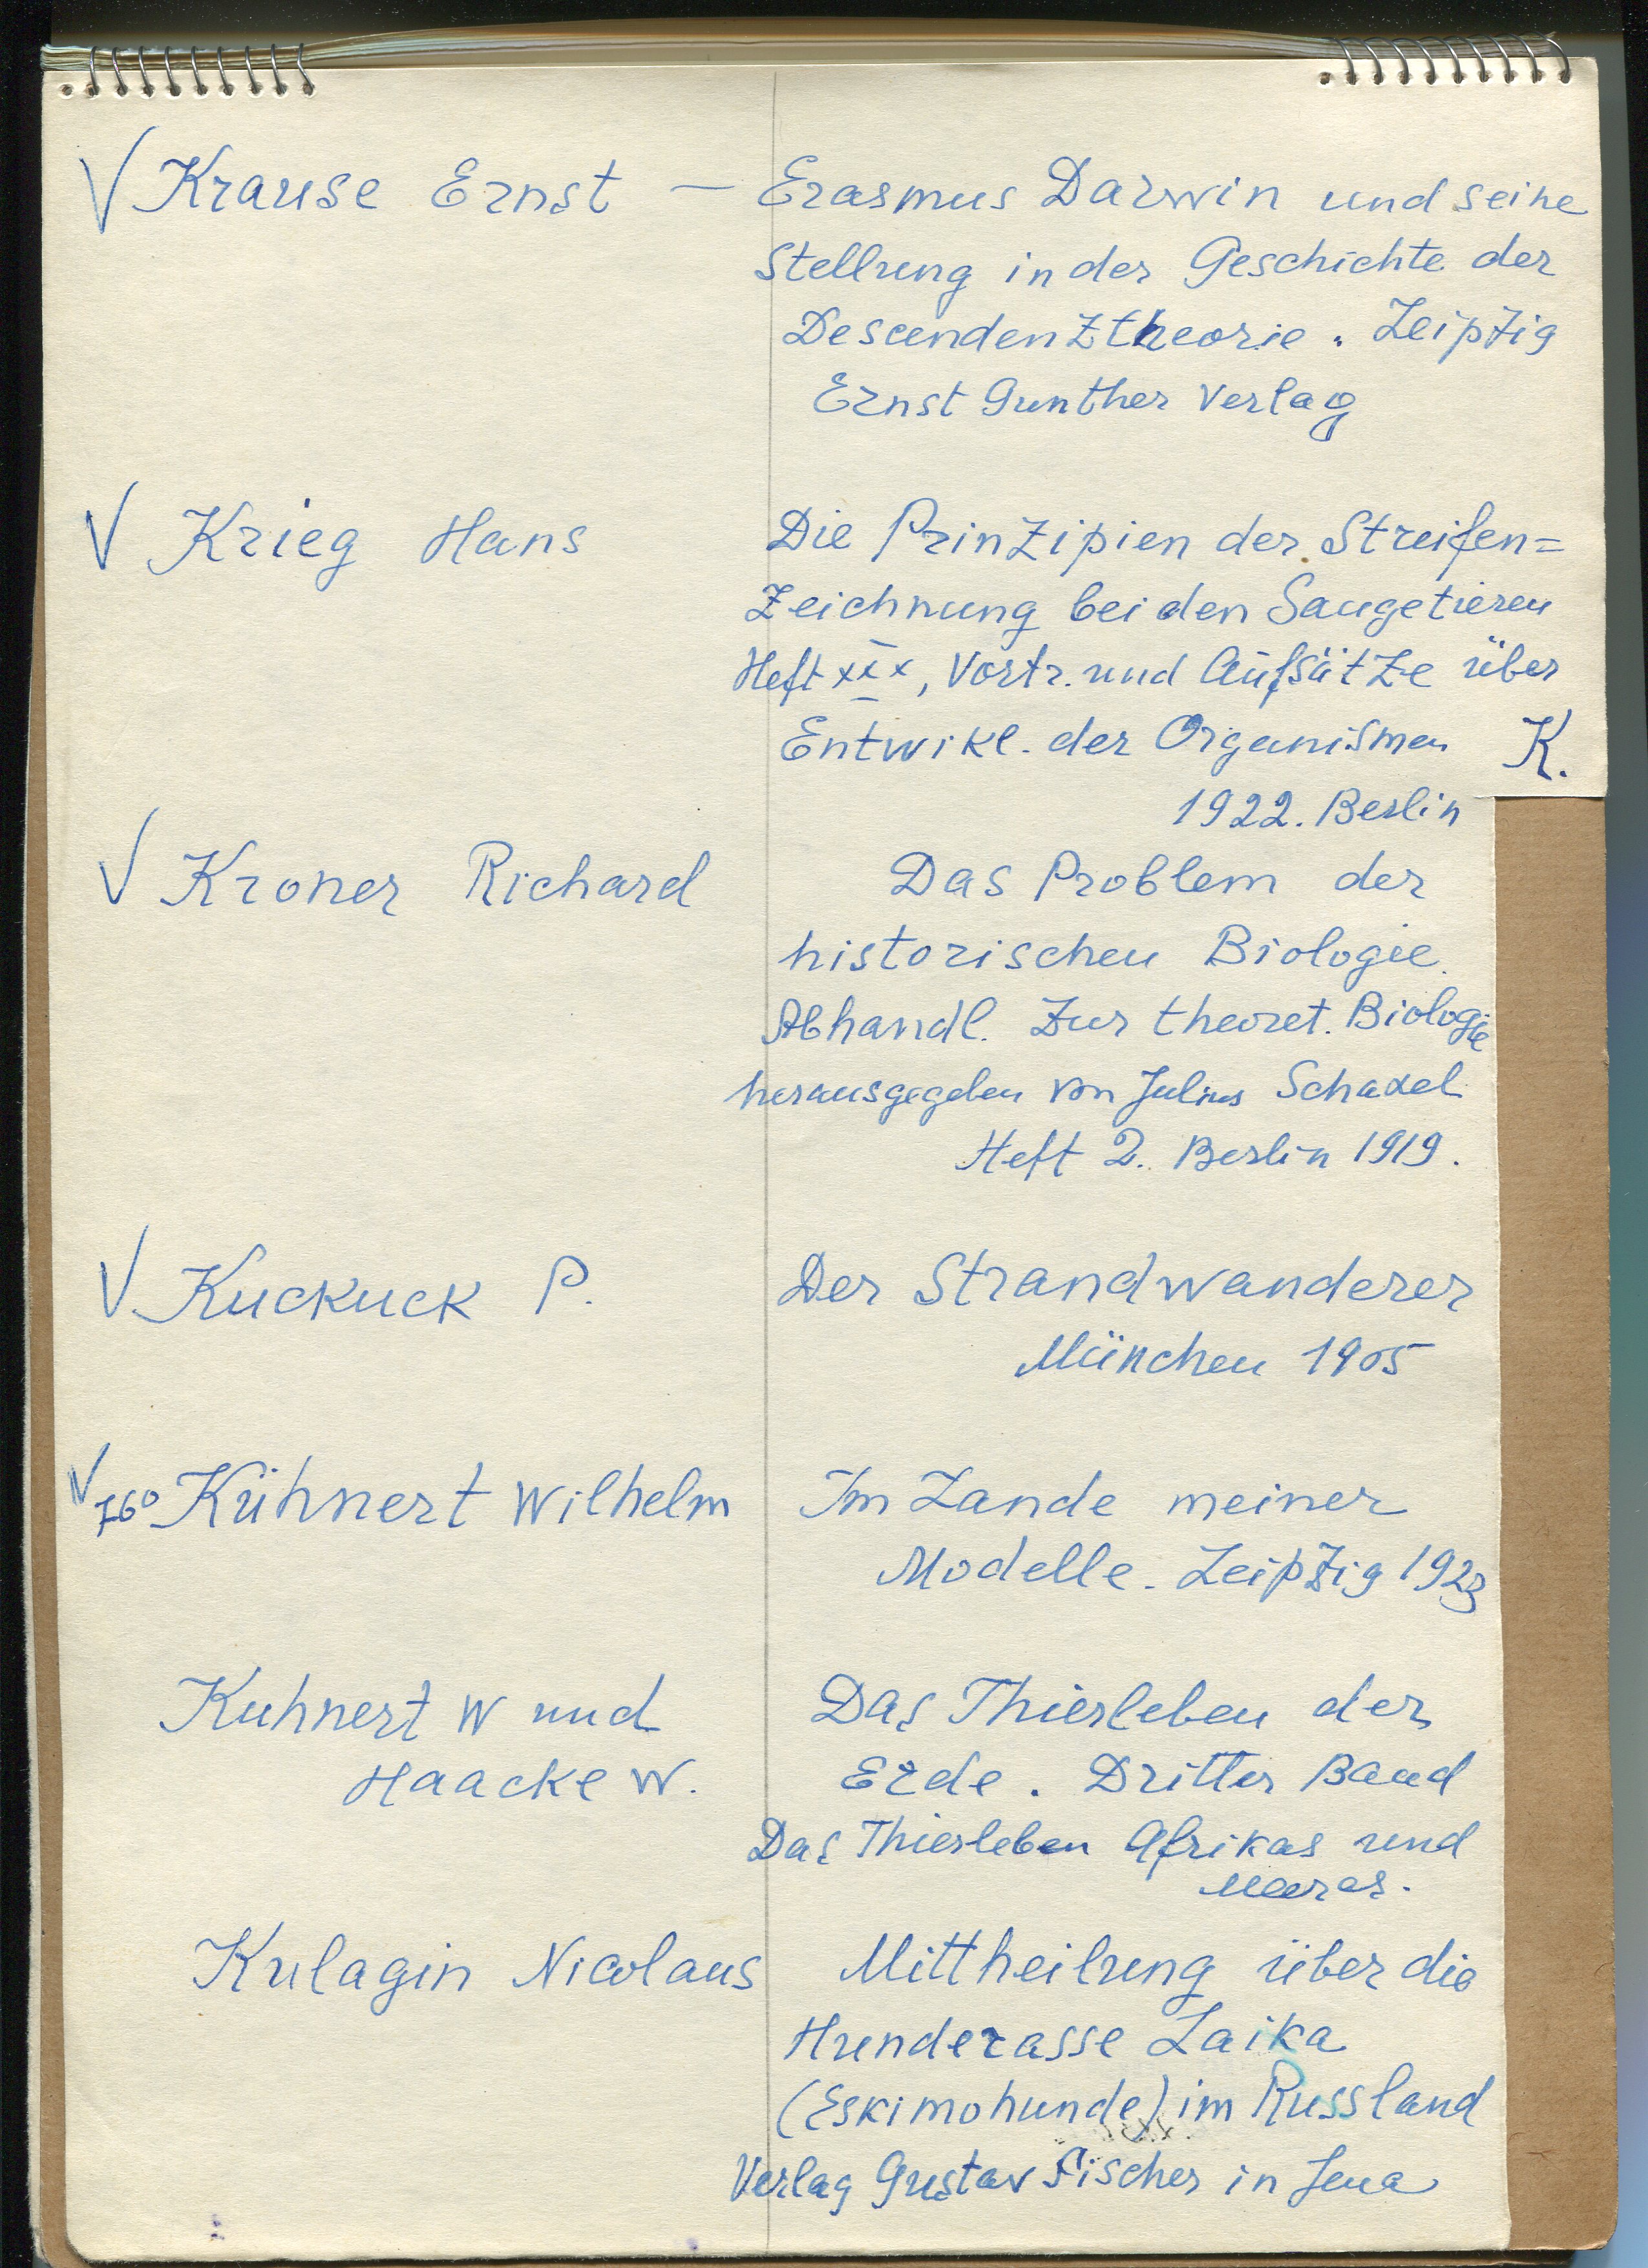 √ Krause Ernst — Erasmus Darwin und seine
Stellung in der Geschichte der
Descendenztheorie. Leipzig
Ernst Gunther Verlag
√ Krieg Hans Die Prinzipien der Streifen=
Zeichnung bei den Saugetieren
Heft xxx, Vortr. und Aufsätze über
Entwikl. der Organismen K.
1922. Berlin
√ Kroner Richard Das Problem der
historischen Biologie.
Abhandl. zur theoret. Biologie
herausgegeben von Julius Schaxel
Heft 2. Berlin 1919.
√ Kuckuck P. Der Strandwanderer
München 1905
√ 760 Kühnert Wilhelm Im Lande meiner
Modelle. Leipzig 1923
Kuhnert W und Das Thierleben der
Haacke W. Erde. Dritter Band
Das Thierleben Afrikas und
Meeres.
Kulagin Nicolaus Mittheilung über die
Hunderasse Laika
(Eskimohunde) im Russland
Verlag Gustav Fischer in Jena